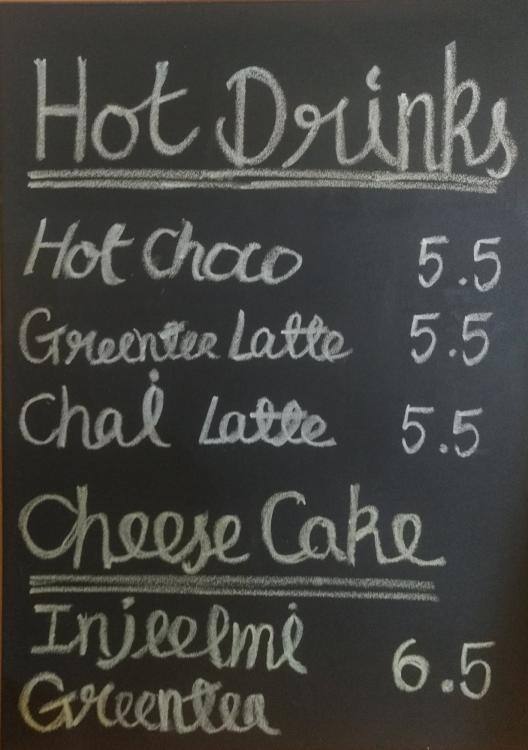 Hot Drinks
Hot Choco 5.5
Greentea Latte 5.5
Chai Latte 5.5
Cheese Cake
Injeelmi 6.5
Greentea